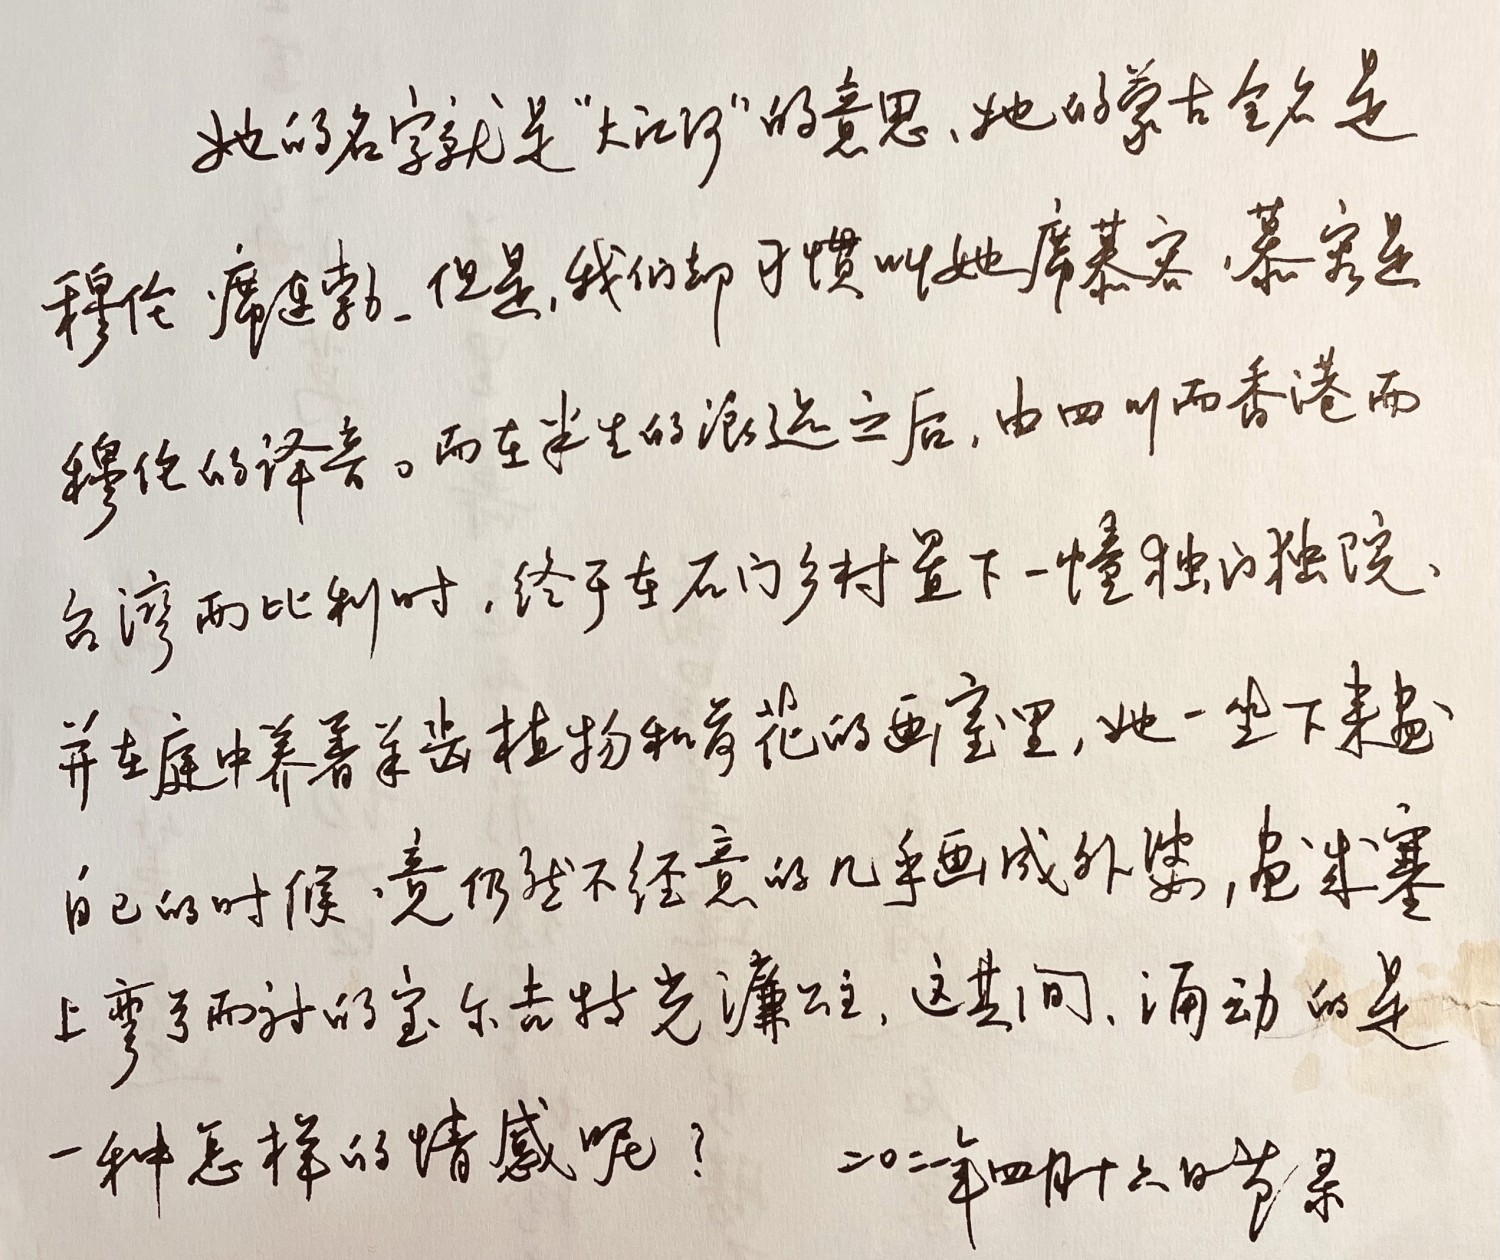 她的名字就是“大江河”的意思、她的蒙古全名是
穆伦·席连勃。但是,我们却习惯叫她席慕容,慕容是
穆伦的译音。而在半生的浪迹之后,由四川而香港而
台湾而比利时,终于在石门乡村置下一幢独门独院、
并在庭中养着羊齿植物和荷花的画室里,她一坐下来画
自己的时候,竟仍然不经意的几乎画成外婆,画成塞
上弯弓而射的宝尔吉特光濂公主,这其间、涌动的是
一种怎样的情感呢?  二〇二一年四月十六日节录